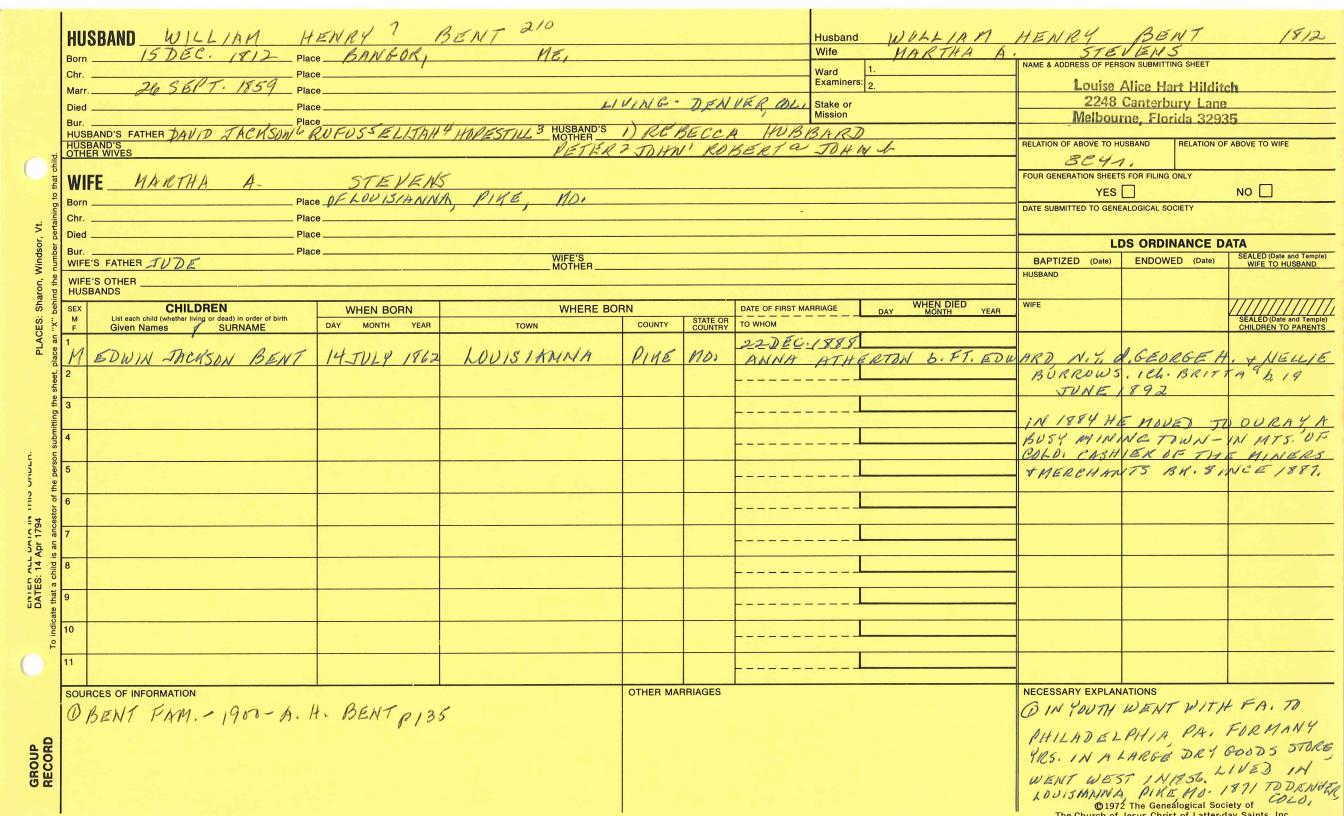 HUSBAND WILLIAM HENRY 7 BENT 210
Born 15 DEC. 1812 Place BANGOR, ME.
Chr. Place
Marr. 26 SEPT. 1859 Place
Died Place LIVING - DENVER, COLO.
Bur. Place
HUSBAND'S FATHER DAVID JACKSON 6 RUFUS 5 ELIJAH 4 HOPESTILL 3 HUSBAND'S MOTHER 1) REBECCA HUBBARD
HUSBAND'S OTHER WIVES PETER 2 JOHN 1 ROBERT a JOHN b
Husband WILLIAM HENRY BENT 1812
Wife MARTHA A. STEVENS
Ward Examiners: 1.
2.
Stake or Mission
NAME & ADDRESS OF PERSON SUBMITTING SHEET
Louise Alice Hart Hilditch
2248 Canterbury Lane
Melbourne, Florida 32935
RELATION OF ABOVE TO HUSBAND RELATION OF ABOVE TO WIFE
FOUR GENERATION SHEETS FOR FILING ONLY
YES NO
DATE SUBMITTED TO GENEALOGICAL SOCIETY
WIFE MARTHA A. STEVENS
Born Place OF LOUISIANNA, PIKE, MO.
Chr. Place
Died Place
Bur. Place
WIFE'S FATHER JUDE WIFE'S MOTHER
WIFE'S OTHER HUSBANDS
LDS ORDINANCE DATA
BAPTIZED (Date) ENDOWED (Date) SEALED (Date and Temple) WIFE TO HUSBAND
HUSBAND
WIFE
SEALED (Date and Temple) CHILDREN TO PARENTS
SEX M F
CHILDREN
List each child (whether living or dead) in order of birth
Given Names SURNAME
WHEN BORN
DAY MONTH YEAR
WHERE BORN
TOWN COUNTY STATE OR COUNTRY
DATE OF FIRST MARRIAGE
TO WHOM
WHEN DIED
DAY MONTH YEAR
1 22 DEC. 1888
M EDWIN JACKSON BENT 14 JULY 1862 LOUISIANNA PIKE MO. ANNA ATHERTON b. FT. EDWARD N.Y. d. GEORGE H. & NELLIE
BURROWS. 1 ch. BRITTA 9 b. 19
JUNE 1892
IN 1884 HE MOVED TO OURAY, A
BUSY MINING TOWN - IN MTS. OF
COLO. CASHIER OF THE MINERS
& MERCHANTS BK. SINCE 1887.
2
3
4
5
6
7
8
9
10
11
SOURCES OF INFORMATION
① BENT FAM. - 1900 - A. H. BENT p 135
OTHER MARRIAGES
NECESSARY EXPLANATIONS
① IN YOUTH WENT WITH FA. TO
PHILADELPHIA, PA. FOR MANY
YRS. IN A LARGE DRY GOODS STORE,
WENT WEST IN 1856. LIVED IN
LOUISIANNA, PIKE, MO. 1871 TO DENVER,
COLO.
©1972 The Genealogical Society of
The Church of Jesus Christ of Latter-day Saints, Inc.
PLACES: Sharon, Windsor, Vt.
ENTER ALL DATA IN THIS ORDER:
DATES: 14 Apr 1794
To indicate that a child is an ancestor of the person submitting the sheet, place an "X" behind the number pertaining to that child.
GROUP RECORD